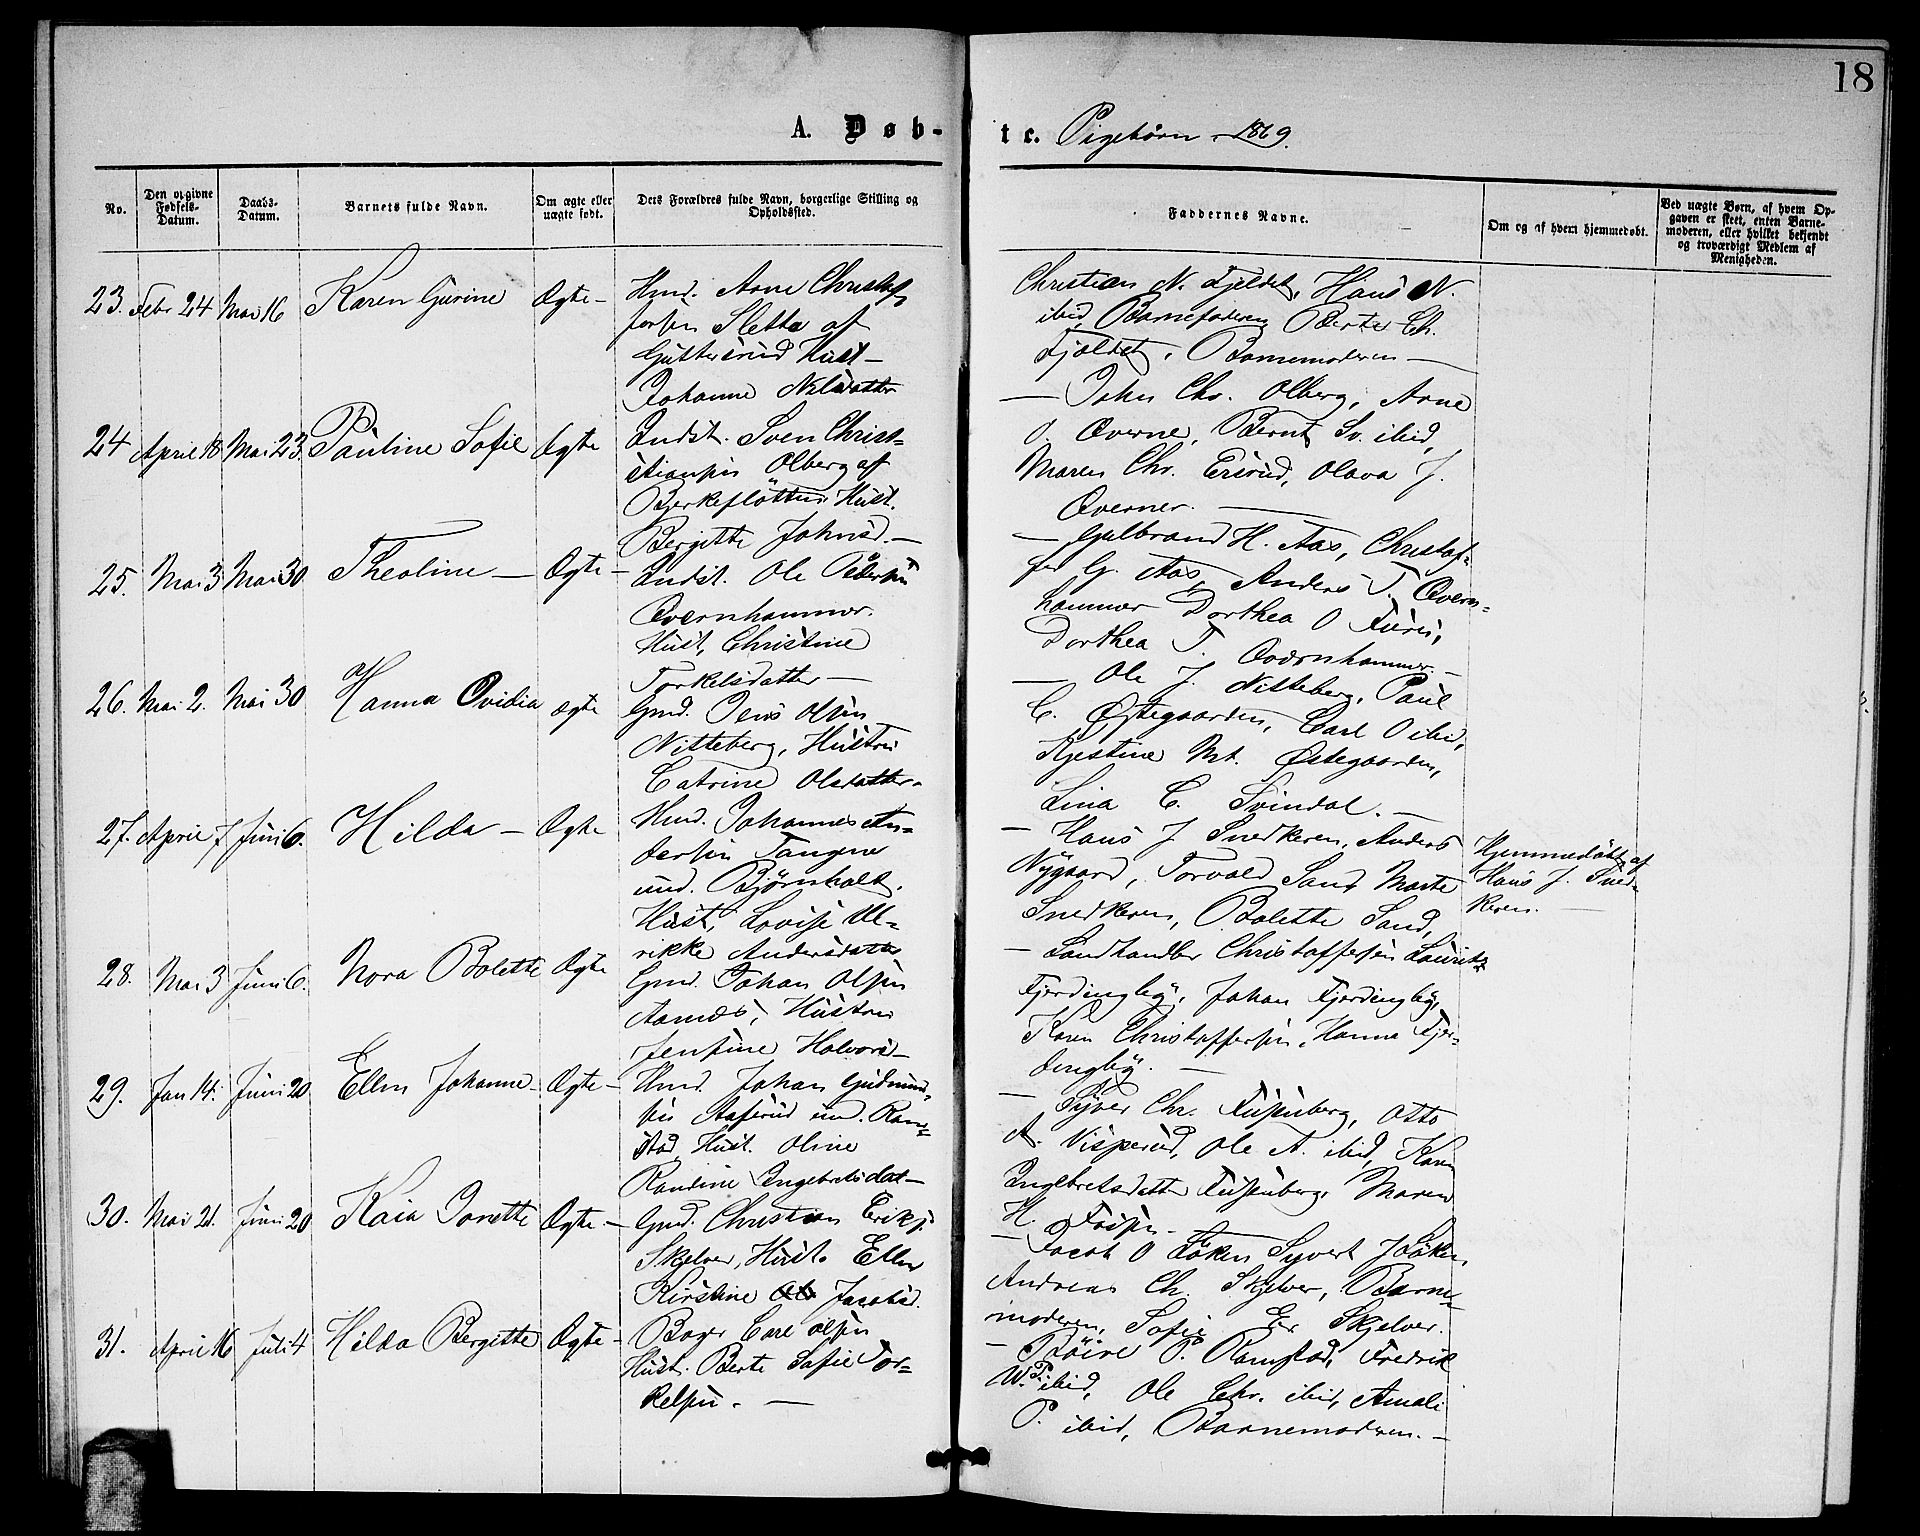 18
A. Døb-
te. Pigebørn 1869.
No.
Den opgivne Fødsels-Datum.
Daabs-Datum.
Barnets fulde Navn.
Om ægte eller uægte født.
Dets Forældres fulde Navn, borgerlige Stilling og Opholdssted.
Faddernes Navne.
Om og af hvem hjemmedøbt.
Ved uægte Børn, af hvem Opgaven er skeet, enten Barnemoderen, eller hvilket bekjendt og troværdigt Medlem af Menigheden.
23. Febr 24 Mai 16 Karen Gurine Ægte-
Hmd. Arne Christof
fersen Sletta af
Gutterud Hust-
Johanne Nilsdatter
Christian N. Fjeldet, Hans N.
ibid, Barnefaderen, Berte Ch.
Fjeldet, Barnemoderen —
24 April 18 Mai 23. Pauline Sofie Ægte
Indst. Sven Christ-
iansen Olberg af
Bjerkefløtten, Hust.
Bergitte Johnsd. —
— John Chr. Olberg, Arne
O. Æverne, Bernt Sv. ibid,
Maren Chr. Erud, Olava J.
Overner. —
25. Mai 3 Mai 30. Theoline — Ægte -
Indst. Ole Pedersen
Overnhammer.
Hust, Christine
Torkelsdatter —
— Gulbrand H. Aas, Christof-
fer G. Aas, Anders T. Overn-
hammer Dorthea O Furu,
Dorthea T. Overnhammer —
26. Mai 2. Mai 30 Hanna Ovidia ægte
Gmd. Jens Olsen
Nitteberg, Hustru
Catrine Olsdatter-
— Ole J. Nitteberg, Paul
C. Østegaarden, Carl O ibid,
Kjestine Mt. Østegaarden,
Lina C. Svindal. —
27. April 7 Juni 6. Hilda — Ægte
Hmd. Johannes An-
dersen Tangen
und. Bjørnholt.
Hust, Lovise Ul-
rikke Andersdatter
— Hans J Snedkeren, Anders
Nygaard, Torvald Sand Marte
Snedkeren, Bolette Sand,
Hjemmedøbt af
Hans J. Sned-
keren. —
28. Mai 3 Juni 6. Nora Bolette Ægte
Gmd. Johan Olsen
Aamds, Hustru
Jensine Halvors-
— Landhandler Christoffersen Lauritz
Fjerdingby, Johan Fjerdingby,
Karen Christoffersen, Hanna Fjer-
dingby. —
29. Jan 14. Juni 20 Ellen Johanne- Ægte -
Hmd. Johan Gudmund-
sen und. Ram-
stad, Hust. Oline
Randine Ingebretsdat-
— Syver Chr. Otto
A. Visperud, Ole A. ibid, Karen
Ingebretsdatter Maren
H.
30. Mai 21. Juni 20 Kaia Jonette Ægte -
Gmd. Christian Eriks.
Skjelver, Hust. Ellen
Kirstine Jacobsd.
— Jacob O Løken Syvert J Løken,
Andreas Ch. Skjelver, Barne-
moderen, Sofie Er Skjelver.
31. April 16 Juli 4 Hilda Bergitte Ægte -
Bager Carl Olsen
Hust. Berte Sofie Tor-
kelsen. —
— P. Ramstad, Fredrik
W. P. ibid, Ole Chr. ibid, Amali
P. ibid, Barnemoderen. —